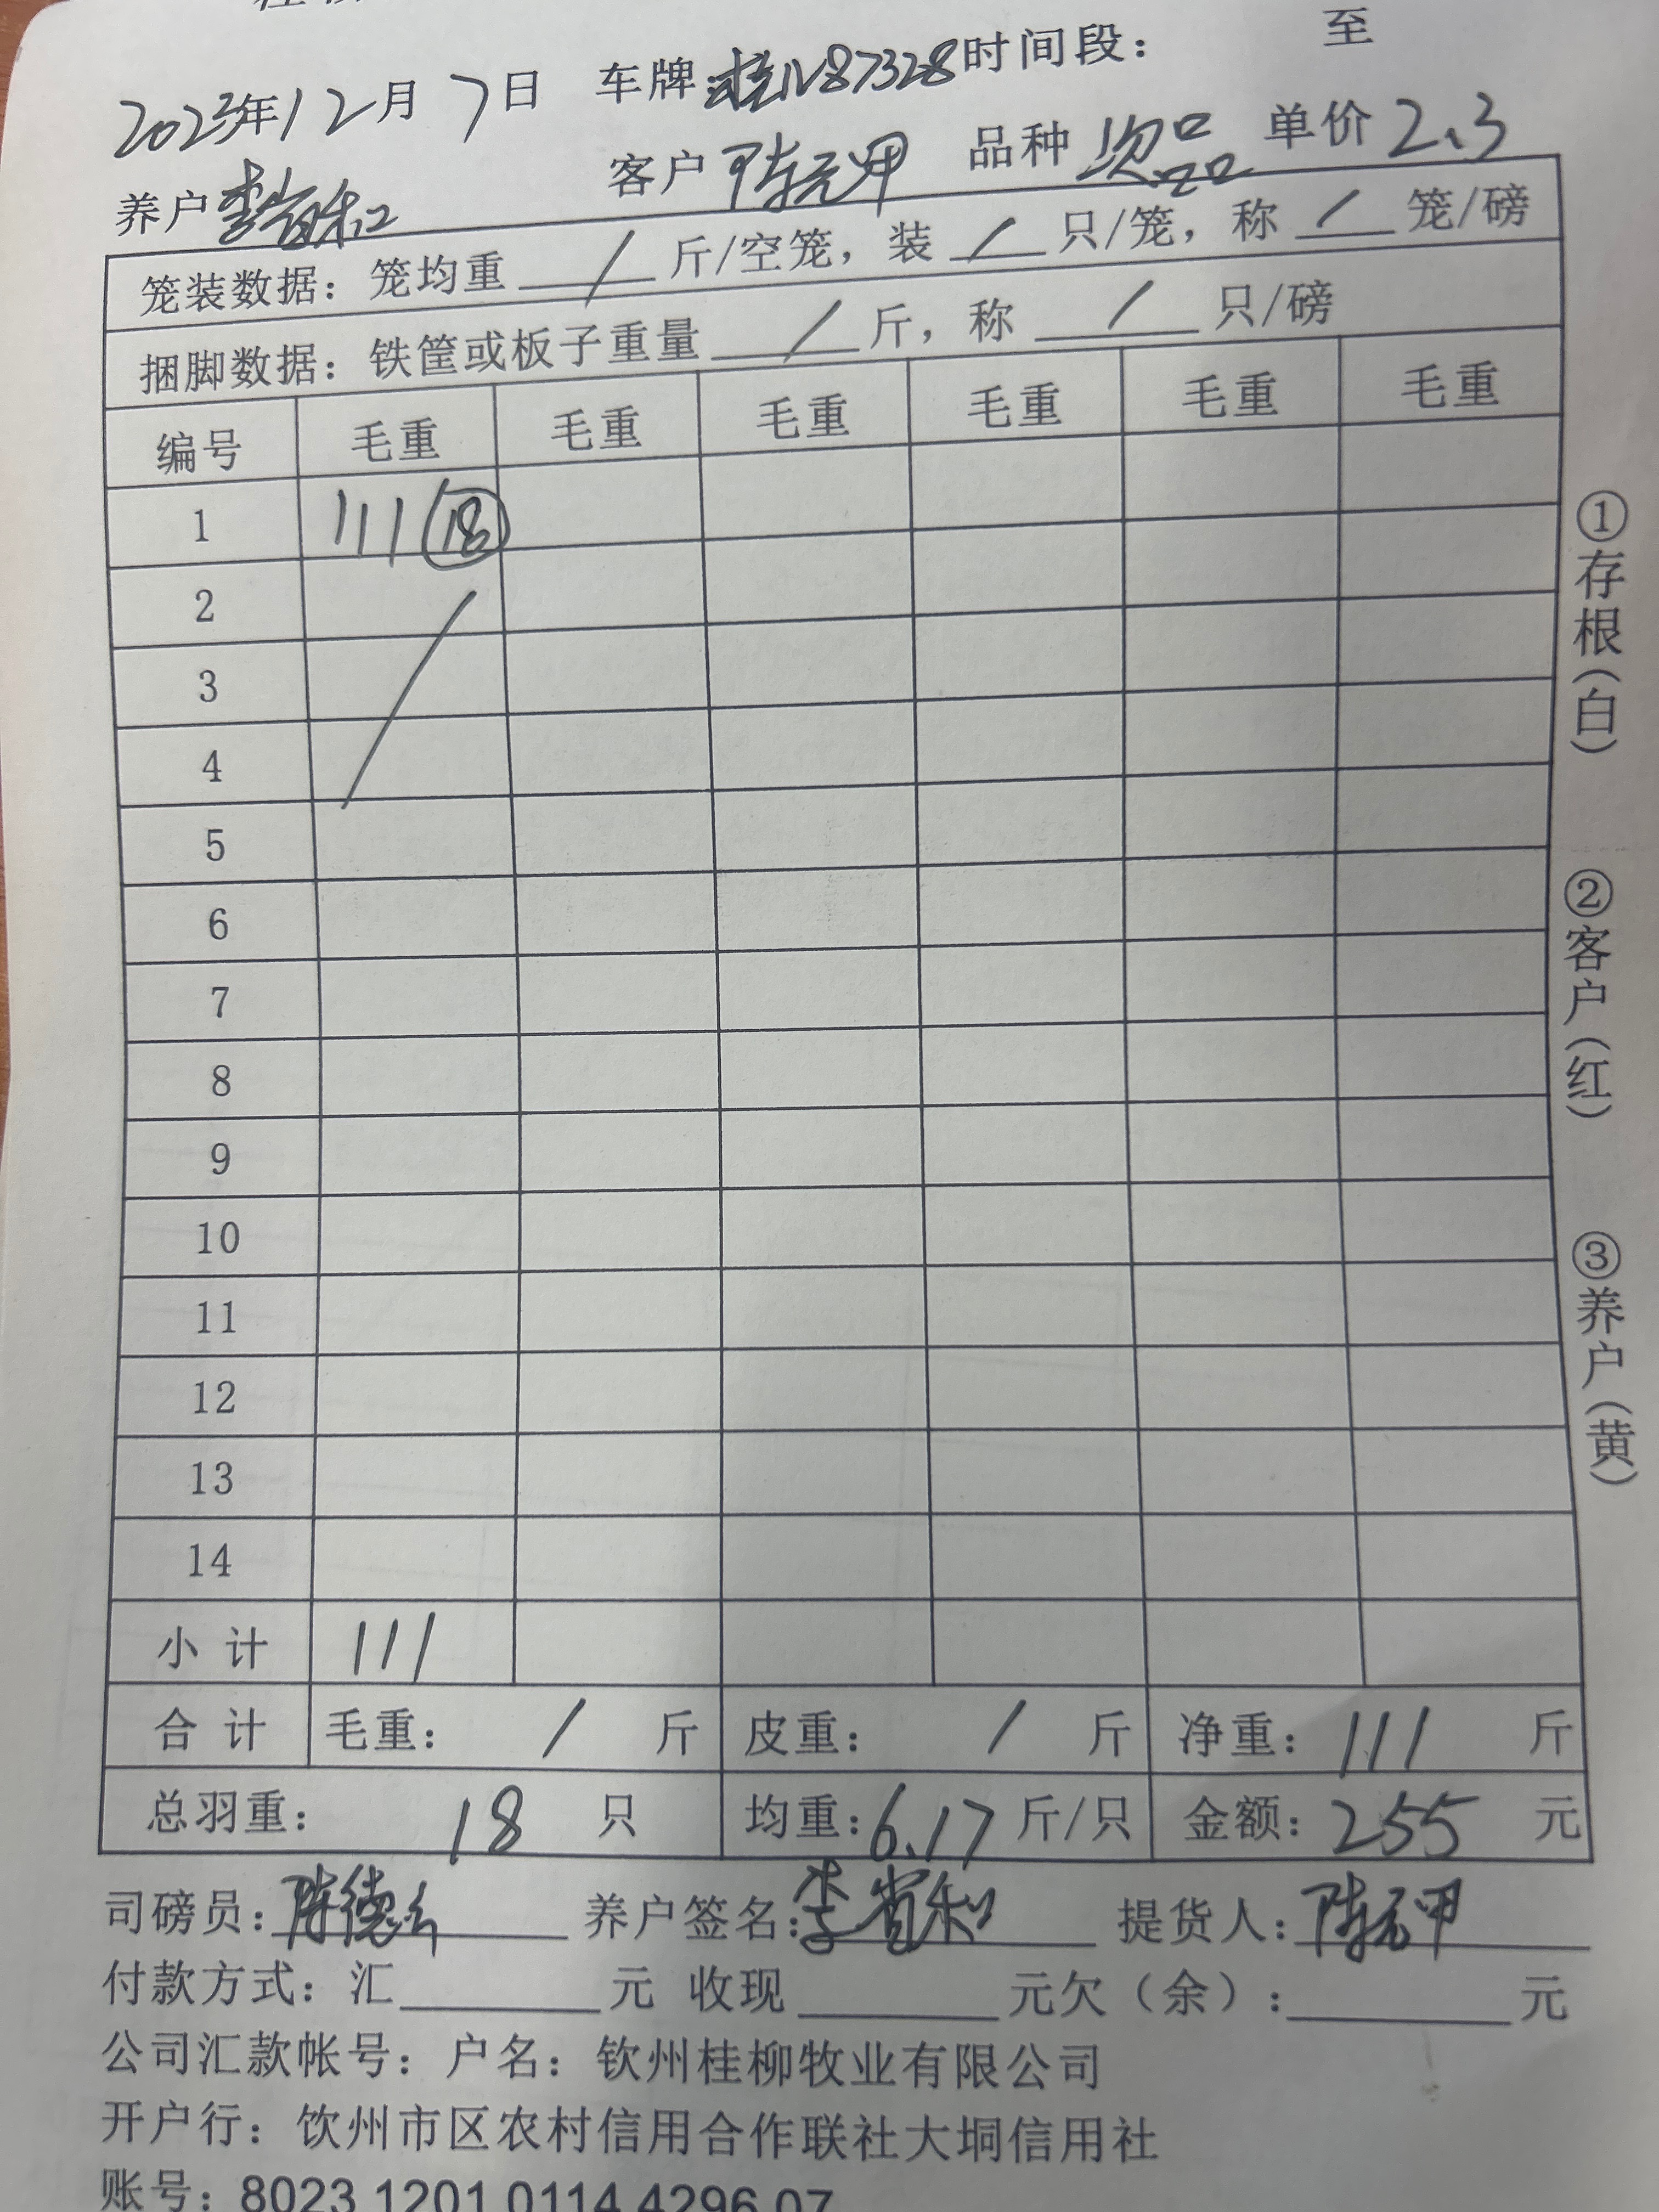 2023年12月7日 车牌:桂N87328时间段: 至
养户李省和 客户陈元甲 品种次品 单价2.3
笼装数据:笼均重/斤/空笼,装/只/笼,称/笼/磅
捆脚数据:铁筐或板子重量/斤,称/只/磅
编号 毛重 毛重 毛重 毛重 毛重 毛重
1 111 (18)
2
3
4
5
6
7
8
9
10
11
12
13
14
小计 111
合计 毛重: / 斤 皮重: / 斤 净重: 111 斤
总羽重: 18 只 均重:6.17斤/只 金额:255 元
司磅员:陈德 养户签名:李省和 提货人:陈元甲
付款方式:汇____元 收现____元欠(余):____元
公司汇款帐号:户名:钦州桂柳牧业有限公司
开户行:钦州市区农村信用合作联社大垌信用社
账号:8023 1201 0114 4296 07
①存根(白)
②客户(红)
③养户(黄)